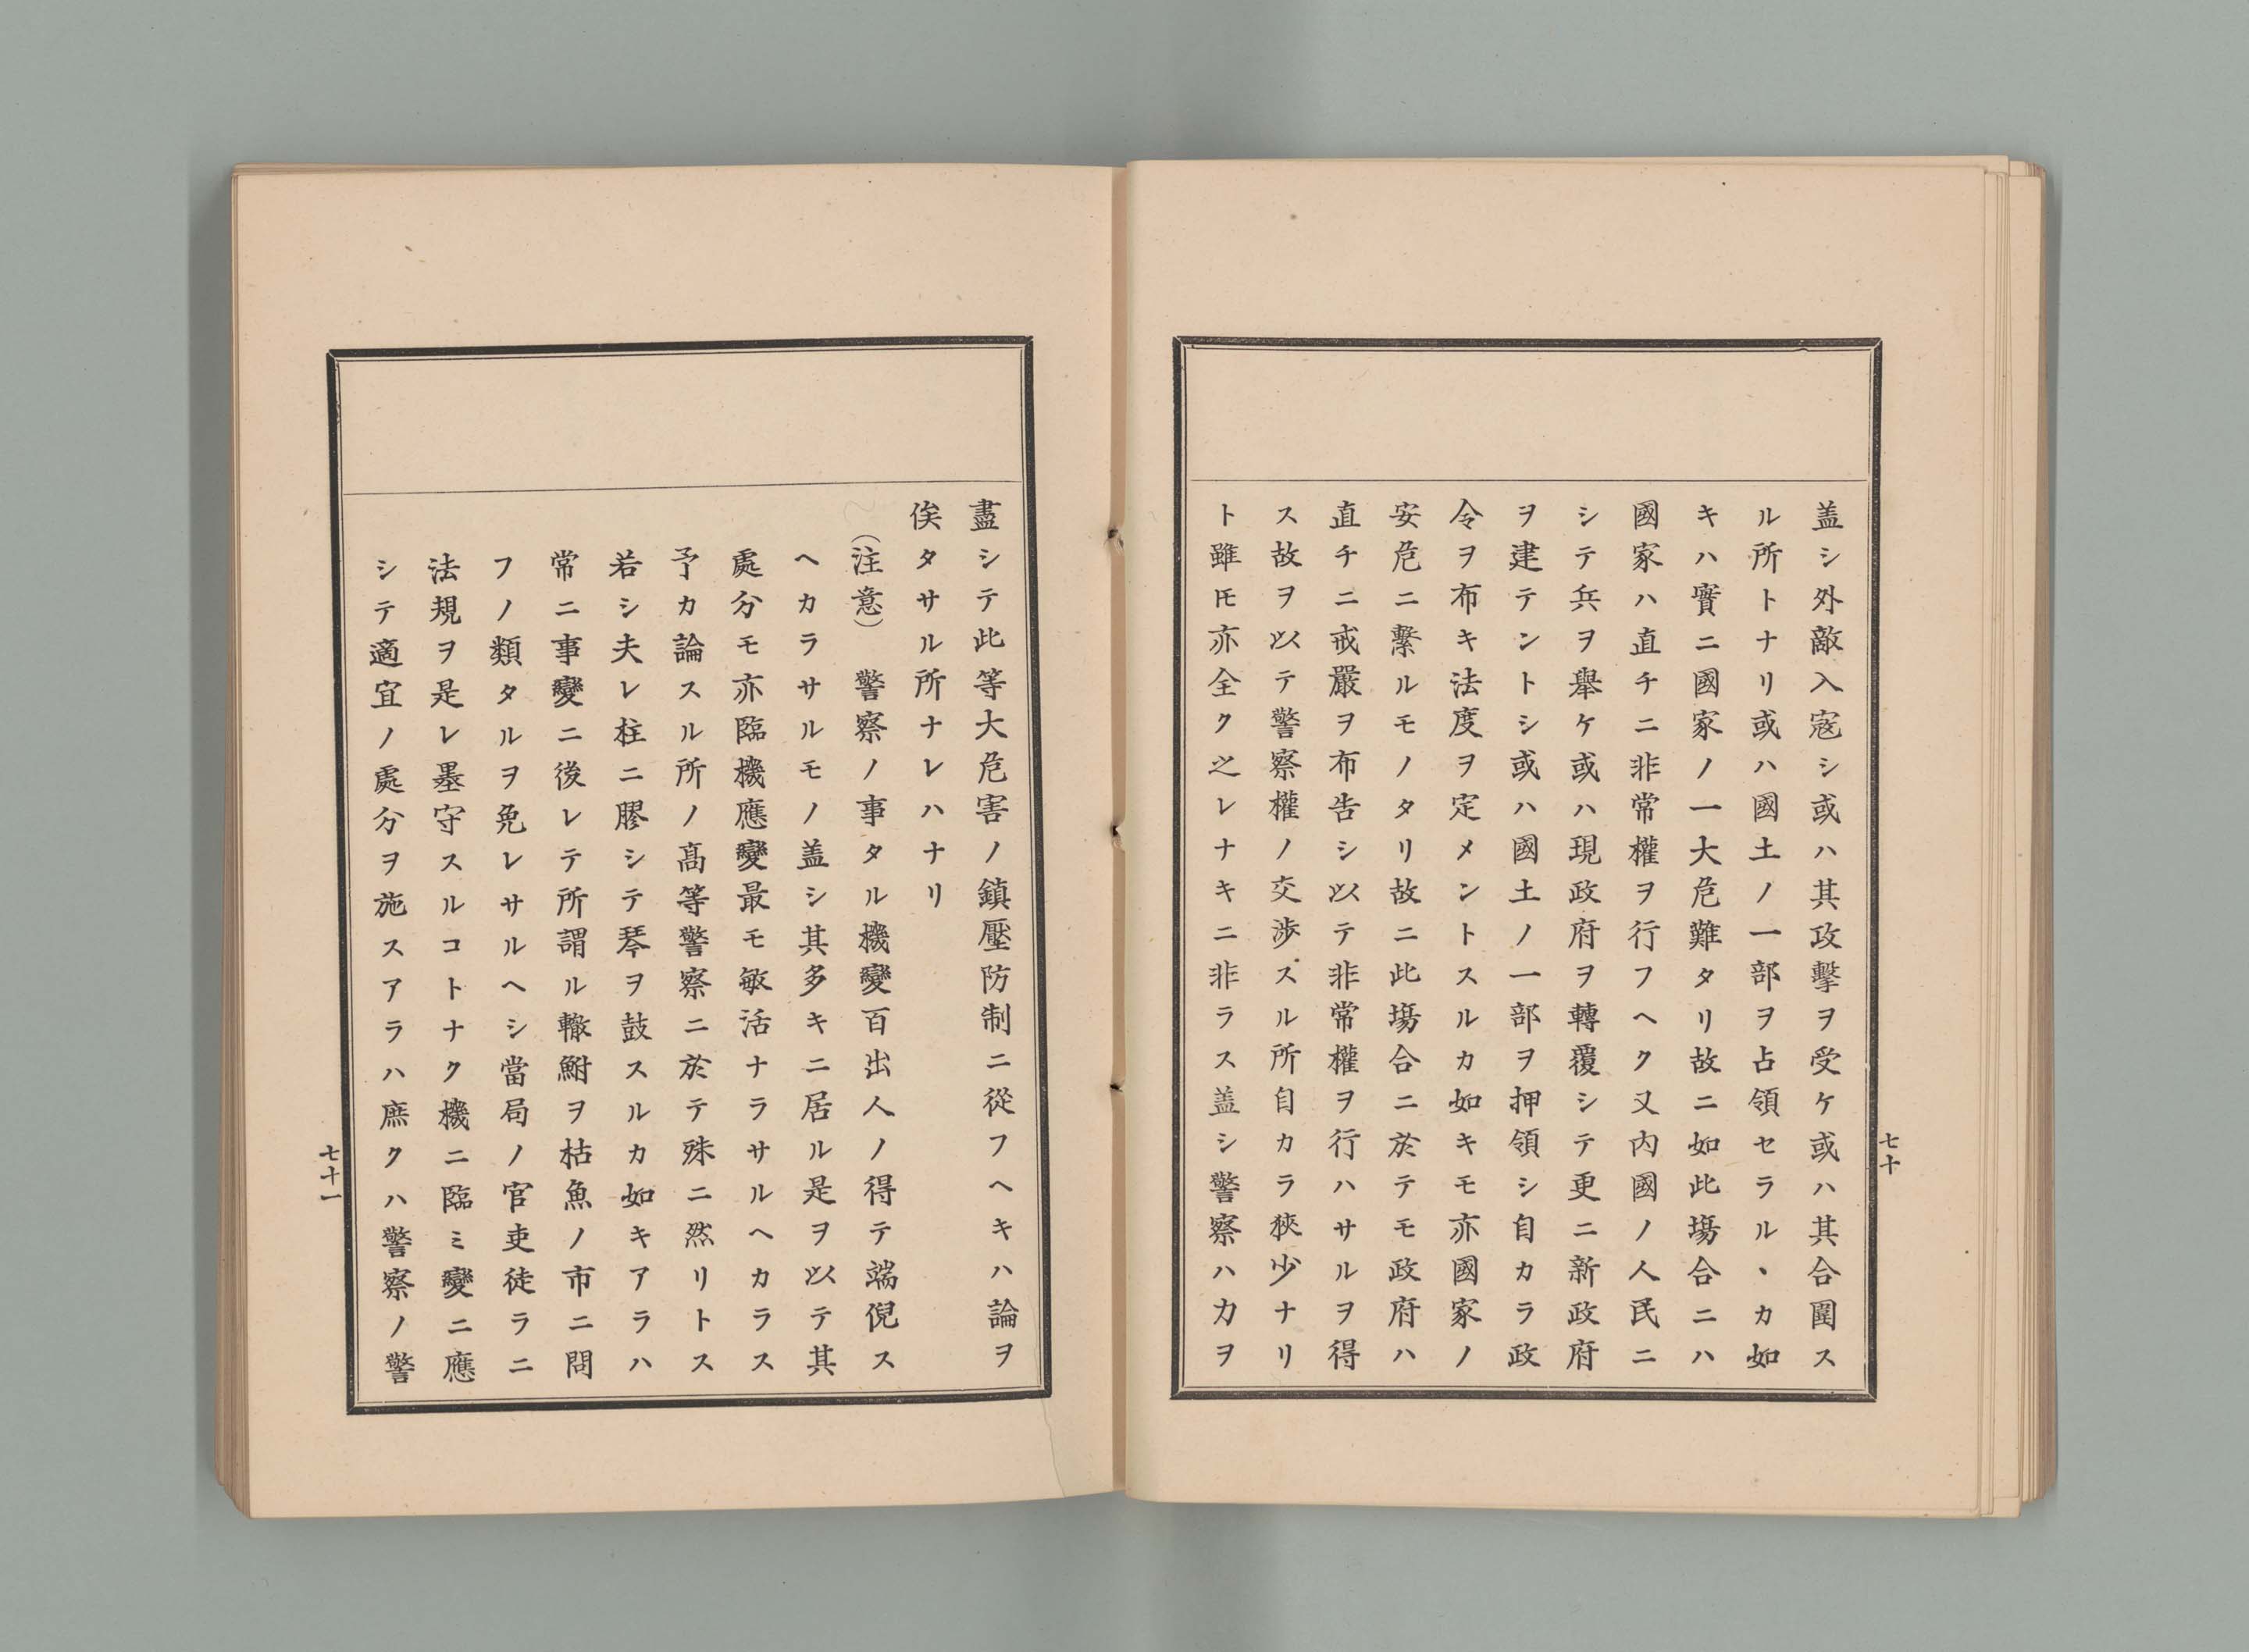 盖シ外敵入寇シ或ハ其政擊ヲ受ケ或ハ其合圍ス
ル所トナリ或ハ國土ノ一部ヲ占領セラル、カ如
キハ實ニ國家ノ一大危難タリ故ニ如此塲合ニハ
國家ハ直チニ非常權ヲ行フヘク又内國ノ人民ニ
シテ兵ヲ舉ケ或ハ現政府ヲ轉覆シテ更ニ新政府
ヲ建テントシ或ハ國土ノ一部ヲ押領シ自カラ政
令ヲ布キ法度ヲ定メントスルカ如キモ亦國家ノ
安危ニ繫ルモノタリ故ニ此塲合ニ於テモ政府ハ
直チニ戒嚴ヲ布告シ以テ非常權ヲ行ハサルヲ得
ス故ヲ以テ警察權ノ交涉スル所自カラ狹少ナリ
ト雖𪜈亦全ク之レナキニ非ラス盖シ警察ハ力ヲ
七十
盡シテ此等大危害ノ鎮壓防制ニ從フヘキハ論ヲ
俟タサル所ナレハナリ
(注意) 警察ノ事タル機變百出人ノ得テ端倪ス
ヘカラサルモノ盖シ其多キニ居ル是ヲ以テ其
處分モ亦臨機應變最モ敏活ナラサルヘカラス
予カ論スル所ノ髙等警察ニ於テ殊ニ然リトス
若シ夫レ柱ニ膠シテ琴ヲ鼓スルカ如キアラハ
常ニ事變ニ後レテ所謂ル轍鮒ヲ枯魚ノ市ニ問
フノ類タルヲ免レサルヘシ當局ノ官吏徒ラニ
法規ヲ是レ墨守スルコトナク機ニ臨ミ變ニ應
シテ適宜ノ處分ヲ施スアラハ庶クハ警察ノ警
七十一